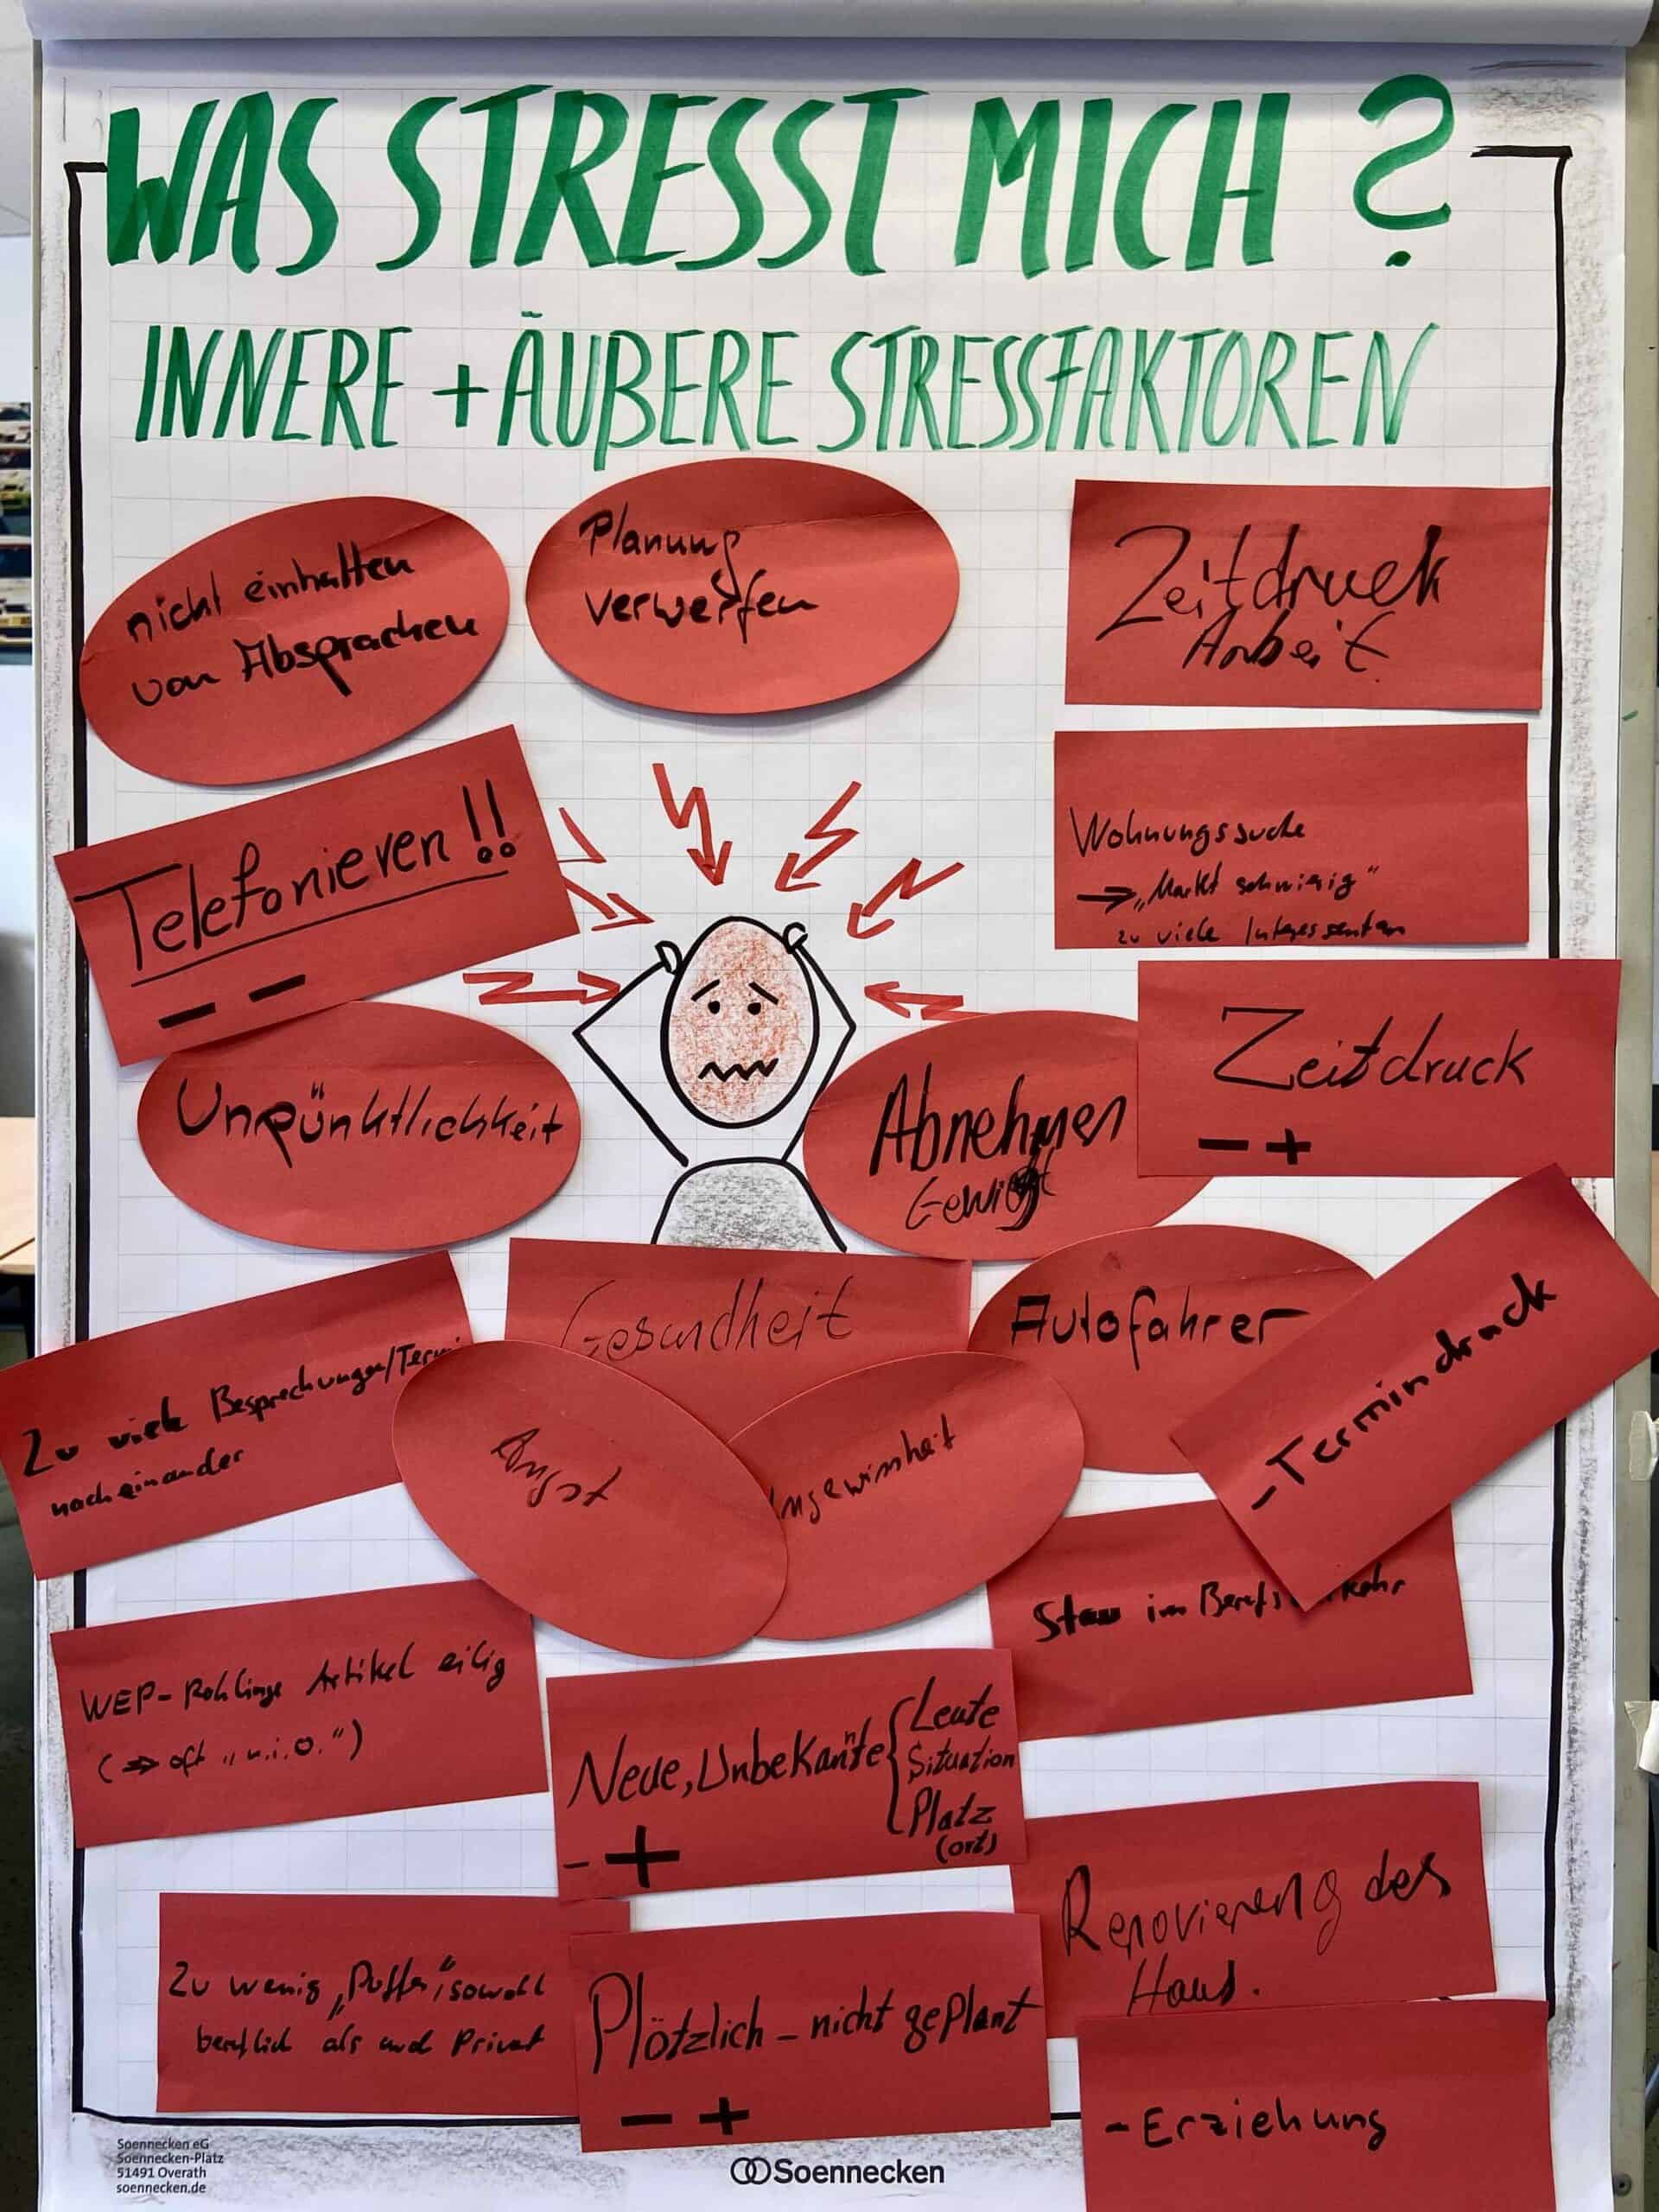 WAS STRESST MICH ?
INNERE + ÄUßERE STRESSFAKTOREN
nicht einhalten
von Absprachen
Planung
verwerfen
Zeitdruck
Arbeit
Telefonieren !!
– –
Wohnungssuche
→ „Markt schwierig“
zu viele Interessenten
Unpünktlichkeit
Abnehmen
Gewicht
Zeitdruck
– +
Zu viele Besprechungen/Termi
nacheinander
Gesundheit
Autofahrer
- Termindruck
Angst
Ungewissheit
Stau im Berufs kehr
WEP-Rohlinge Artikel eilig
(⇒ oft „n.i.O.“)
Neue, Unbekannte { Leute
Situation
Platz
(ort)
- +
Renovierung des
Haus.
Zu wenig „Puffer“, sowohl
beruflich als auch Privat
Plötzlich – nicht geplant
– +
- Erziehung
Soennecken eG
Soennecken-Platz
51491 Overath
soennecken.de
Soennecken